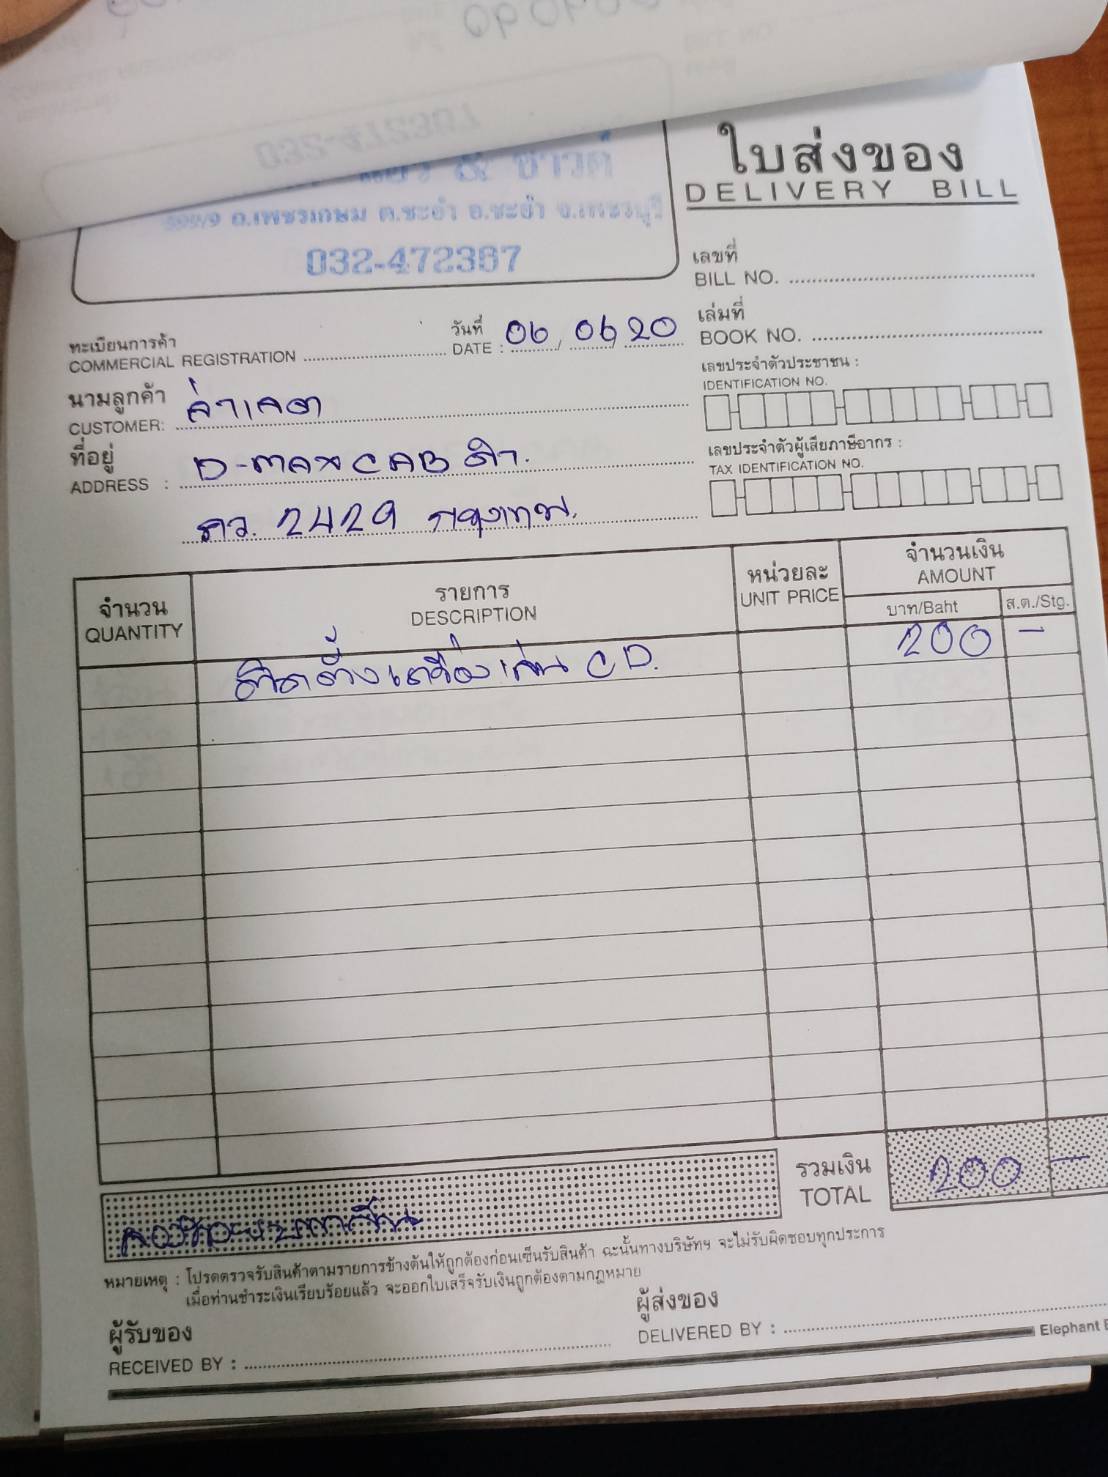 ใบส่งของ
DELIVERY BILL
& ซาวด์
ถ.เพชรเกษม ต.ชะอำ อ.ชะอำ จ.เพชรบุรี
032-472367
เลขที่
BILL NO.
เล่มที่
BOOK NO.
ทะเบียนการค้า
COMMERCIAL REGISTRATION
วันที่
DATE : 06 / 06 / 20
นามลูกค้า
CUSTOMER:
ที่อยู่ D-max CAB ดำ.
ADDRESS :
2429 กรุงเทพ.
เลขประจำตัวประชาชน :
IDENTIFICATION NO.
เลขประจำตัวผู้เสียภาษีอากร :
TAX IDENTIFICATION NO.
จำนวน
QUANTITY
รายการ
DESCRIPTION
หน่วยละ
UNIT PRICE
จำนวนเงิน
AMOUNT
บาท/Baht
ส.ต./Stg.
ติดตั้งเครื่องเล่น CD. 200 -
รวมเงิน
TOTAL
200 -
สองร้อยบาทถ้วน
หมายเหตุ : โปรดตรวจรับสินค้าตามรายการข้างต้นให้ถูกต้องก่อนเซ็นรับสินค้า ฉะนั้นทางบริษัทฯ จะไม่รับผิดชอบทุกประการ
เมื่อท่านชำระเงินเรียบร้อยแล้ว จะออกใบเสร็จรับเงินถูกต้องตามกฎหมาย
ผู้รับของ
RECEIVED BY :
ผู้ส่งของ
DELIVERED BY :
Elephant